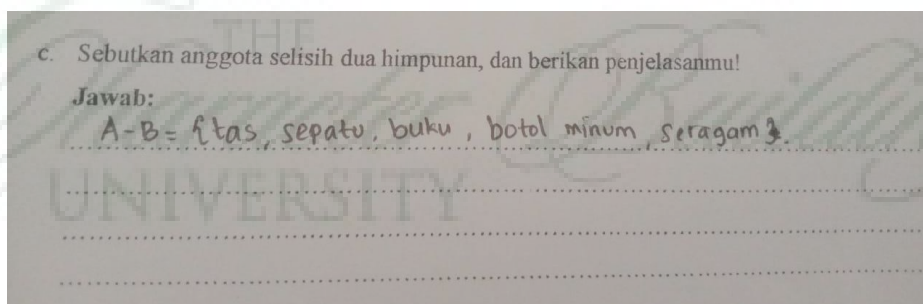 THE
c. Sebutkan anggota selisih dua himpunan, dan berikan penjelasanmu!
Jawab:
A-B = {tas, sepatu, buku, botol minum, seragam}.
UNIVERSITY